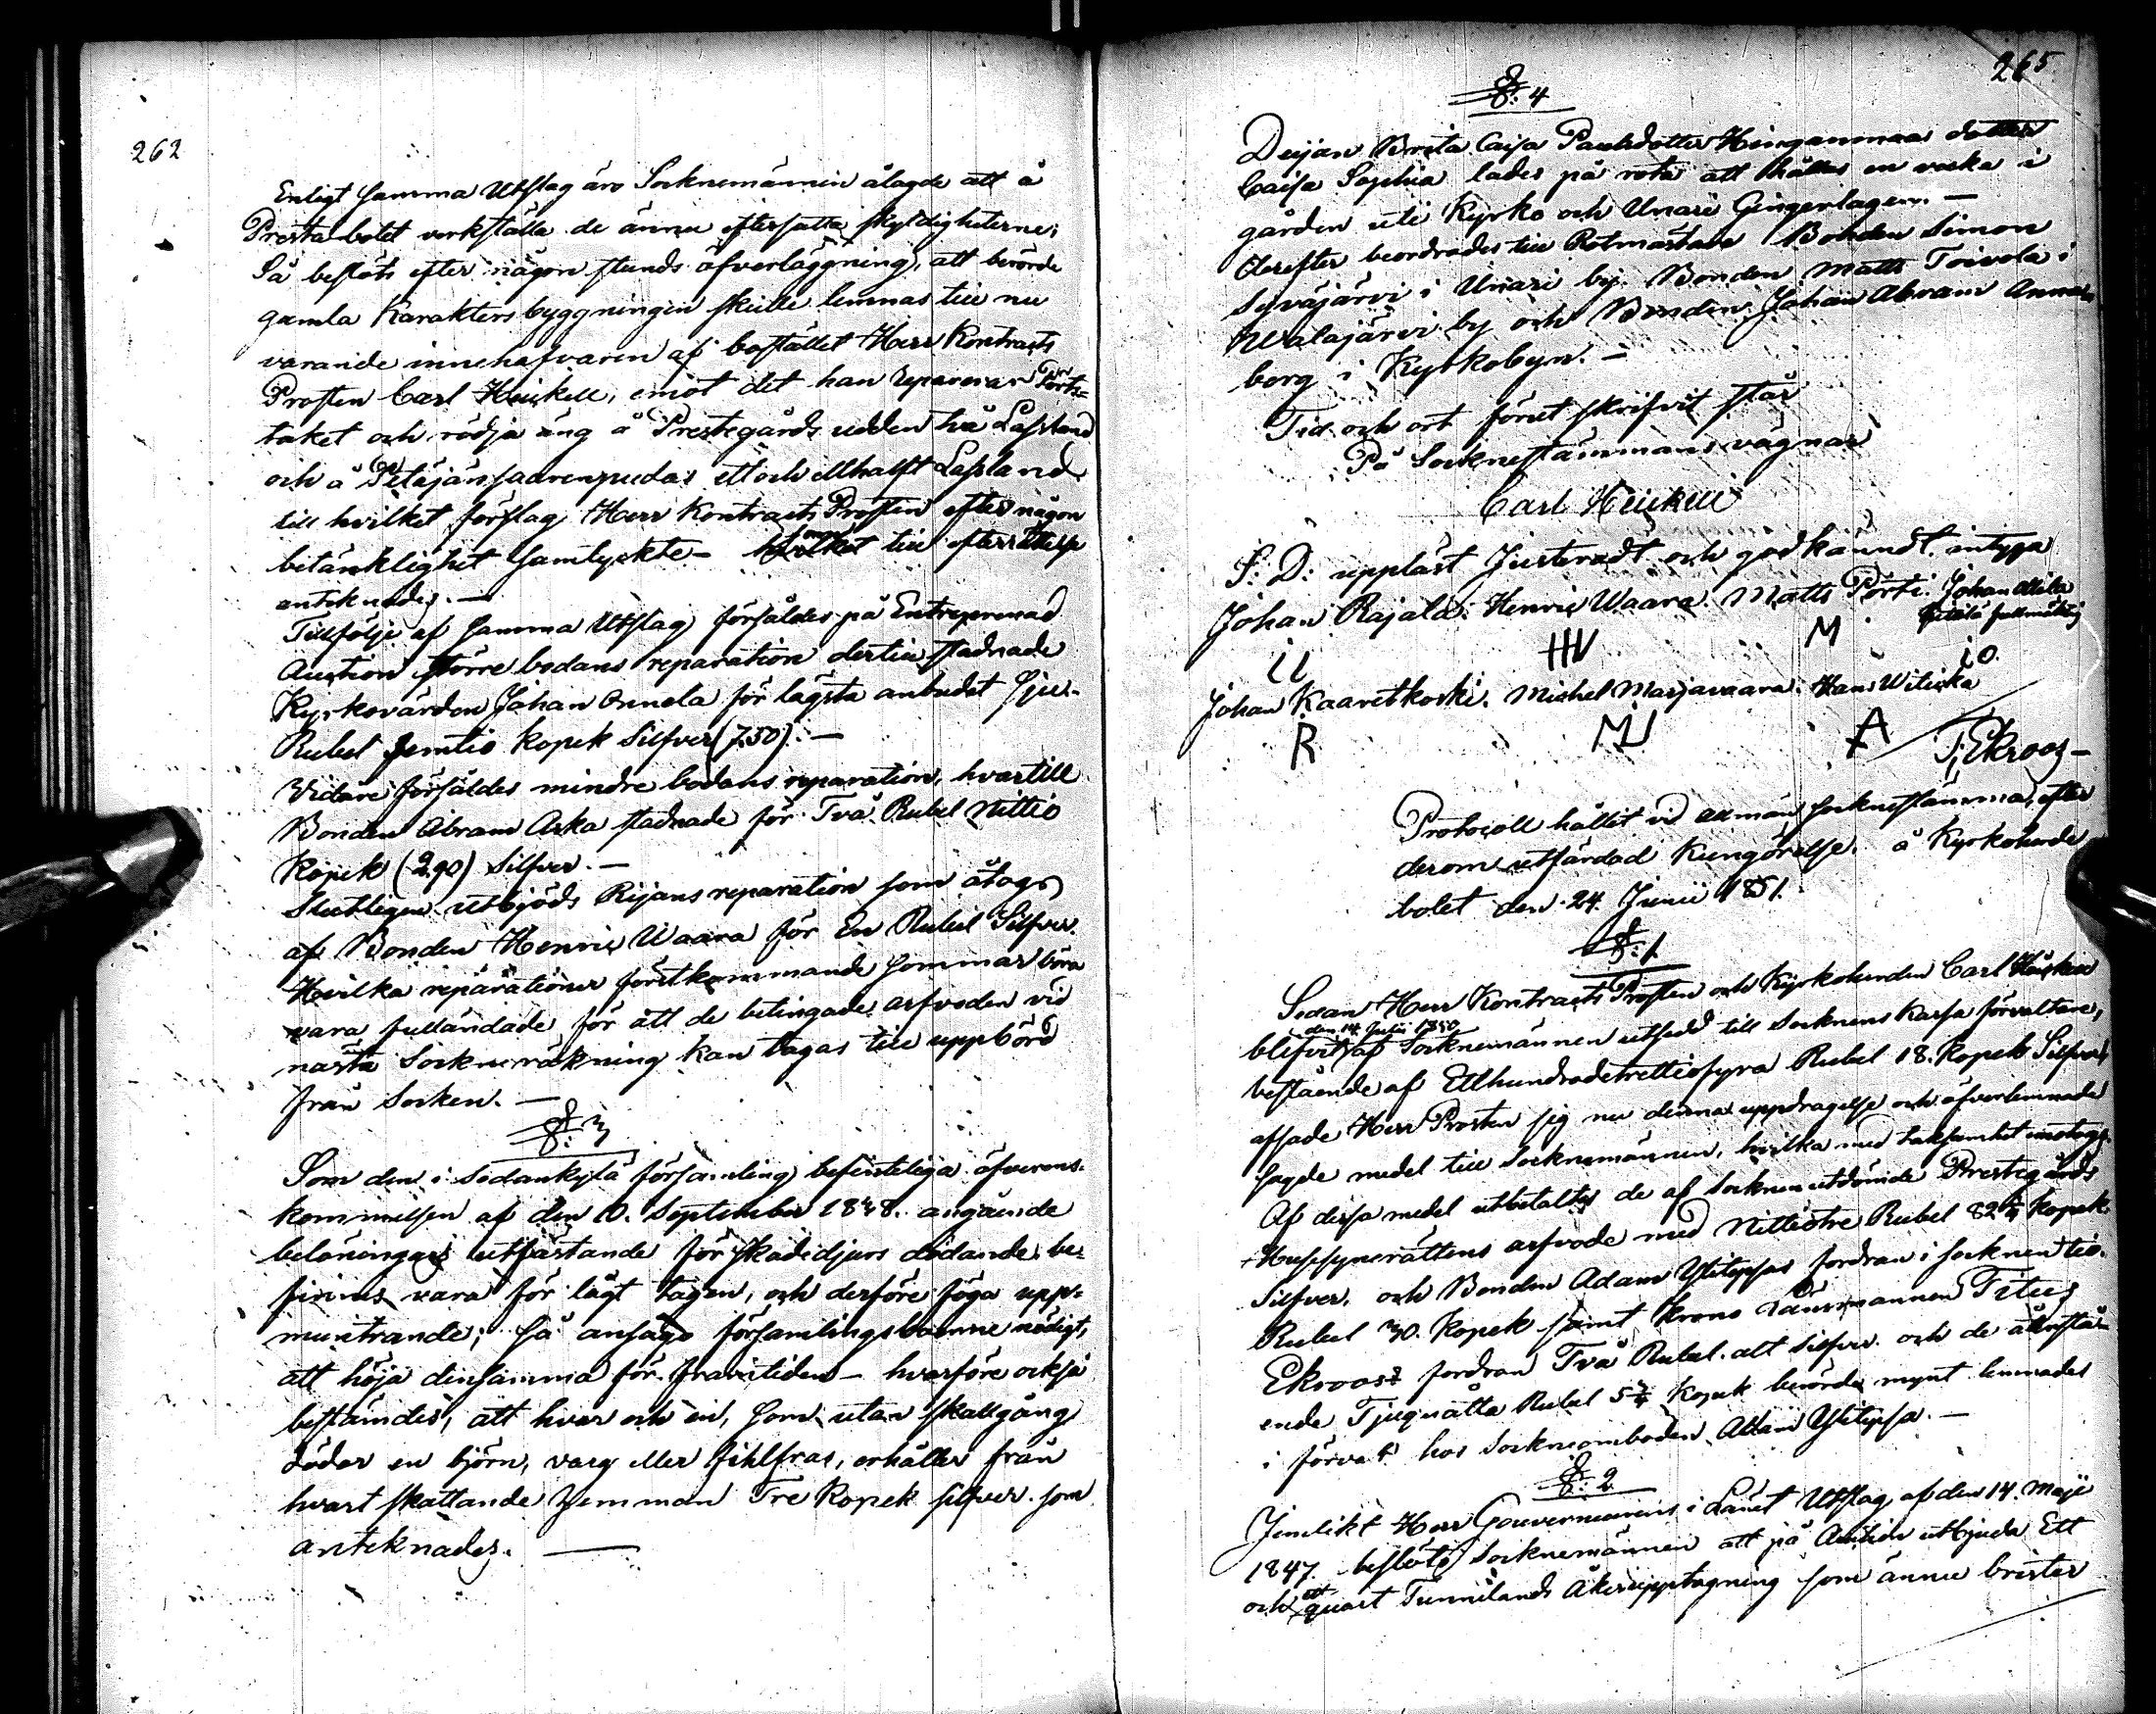 262
Enligt samma Utslag äro Socknemännen ålagde att å
Prestabolet verkställa de ännu eftersatta skyldigheterne;
Så beslöts efter någon stunds öfverläggning, att berörde
gamla Karakters byggningen skulle lemnas till nu
varande innehafvaren af bostället Herr Kontracts
Prosten Carl Heickell, emot det han reparerar Pörts-
taket och rödja äng å Prestegårds udden två Lassland
och å Petäjänsaarenpudas ett och ett halft Lassland
till hvilket förslag Herr Kontracts Prosten efter någon
betänklighet samtyckte – som till efterrättelse
antecknades. —
Tillfölje af samma Utslag försåldes på Entreprenad
Auction större bodans reparation dertill stadnade
Kyrkovärden Johan Onnela för lägsta anbudet sju
Rubel femtio kopek Silfver (7.50). —
Vidare försåldes mindre bodans reparation, hvartill
Bonden Abram Aska stadnade för Två Rubel Nittio
kopek (2.90) Silfver. —
Slutligen utbjöds Rijans reparation som åtogs
af Bonden Henric Waara för En Rubel Silfver.
Hvilka reparationer förstkommande sommar böra
vara fulländade för att de betingade arfvoden vid
nästa Socknerräkning kan tagas till uppbörd
från Socken. —
§: 3
Som den i Sodankylä församling befinteliga öfverens-
kommelsen af den 10. September 1848. angående
belöningars utfästande för skadedjurs dödande, be-
finnes vara för lågt tagen, och derföre föga upp-
muntrande; så ansågo församlingsboerne nödigt,
att höja densamma för framtiden – hvarföre också
bestämdes, att hvar och en, som utan skallgång
dödar en björn, varg eller fihlfras, erhåller från
hvart skattande hemman Tre Kopek silfver. som
antecknades. —
265
§: 4
Deijan Brita Caisa Paulsdotter Hinganmaa dotter
Caisa Sophia lades på rota att hållas en vecka i
gården uti Kyrko och Unari Gingerlagen. —
Derefter beordrades till Rotmästare Bonden Simon
Syväjärvi i Unari by. Bonden Matts Toivola i
Walajärvi by och Bonden Johan Abram Anne-
borg i Kyrkobyn. —
Tid och ort förut skrifvit står
På Sockneståmmans vägnar
Carl Heickell
S: D: uppläst Justeradt och godkänndt, intyga
Johan Rajala. Henric Waara. Matts Pörti. Johan
fullmäktig
HW M
Johan Kaaretkoski. Michel Marjavaara. Hans Witicka
R M A
T: Ekroos –
Protocoll hållit vid allmän socknestämma, efter
derom utfärdad Kungörelse, å Kyrkoherde
bolet den 24. Junii 1851.
§: 1.
Sedan Herr Kontracts Prosten och Kyrkoherden Carl Heickell
den 14 Julii 1850
blifvit af Socknemännen utsedd till Socknens Kassa förvaltare,
bestående af Etthundradetrettiofyra Rubel 18. kopek Silfver,
afsade Herr Prosten sig nu denna uppdragelse och öfverlemnade
sagde medel till Socknemännen, hvilka med tacksamhet emottogs.
Af dessa medel utbetaltes de af Socknen utdömde Prestegårds
Hussynerättens arfvode med Nittiotre Rubel 82 4/7 kopek
Silfver, och Bonden Adam Ylitepsas fordran i socknen tio.
Rubel 30. kopek samt krono Länsmannen Titus
Ekroos fordran Två Rubel. allt silfver. och de återstå-
ende Tjugoåtta Rubel 5 3/7 kopek berörda mynt lemnades
i förvar hos Sockneombuden Adam Ylitepsa. —
§: 2
Jemlikt Herr Gouverneurens i Länet Utslag af den 14. Maji
1847. beslöto Socknemännen att på Auction utbjuda Ett
och ett quart Tunnelands åkerupptagning som ännu brister